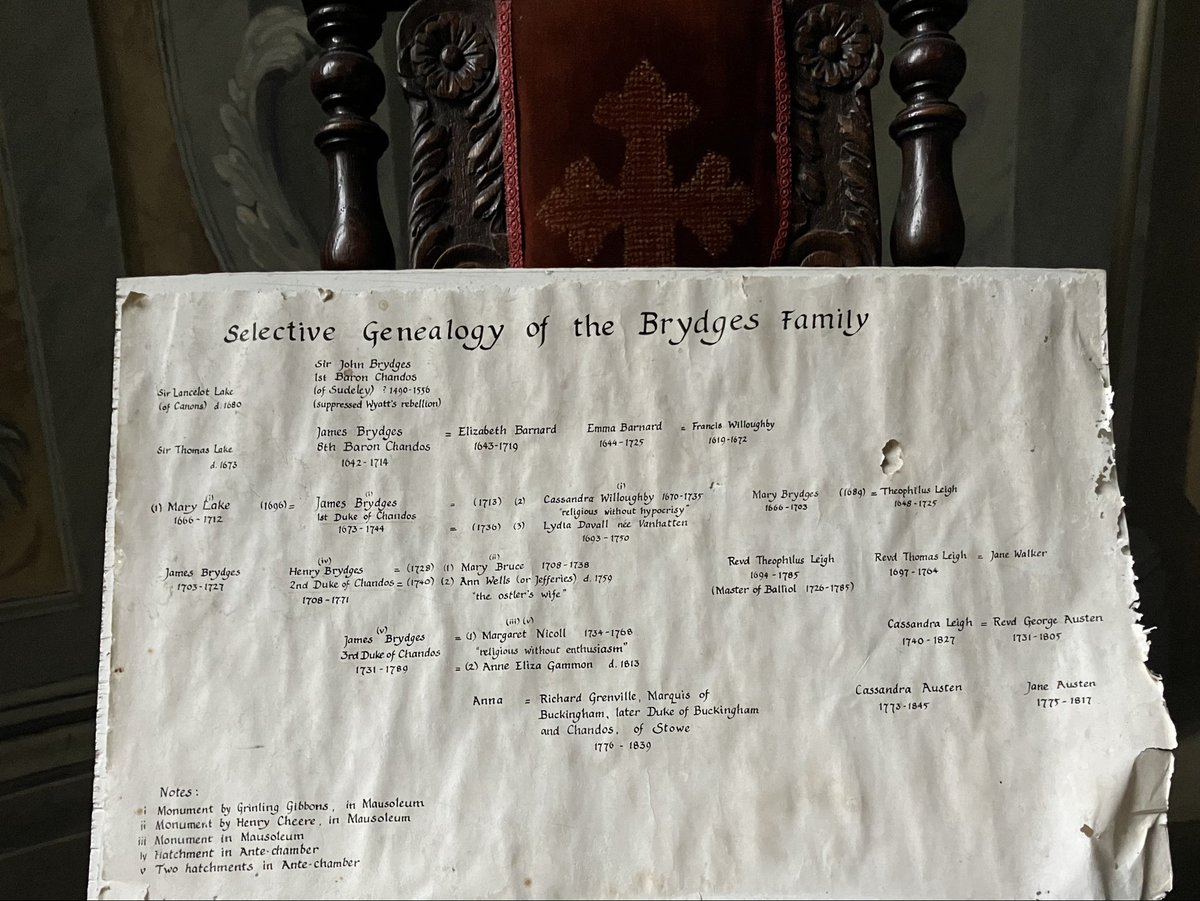 Selective Genealogy of the Brydges Family
Sir Lancelot Lake
(of Canons) d. 1680
Sir John Brydges
1st Baron Chandos
(of Sudeley) ? 1490-1556
(suppressed Wyatt's rebellion)
Sir Thomas Lake
d. 1673
James Brydges = Elizabeth Barnard
8th Baron Chandos 1643-1719
1642-1714
Emma Barnard = Francis Willoughby
1644-1725 1619-1672
(i) (i) (i)
(1) Mary Lake (1696) = James Brydges = (1713) (2) Cassandra Willoughby 1670-1735
1666-1712 1st Duke of Chandos "religious without hypocrisy"
1673-1744 = (1736) (3) Lydia Davall née Vanhatten
1693-1750
Mary Brydges (1689) = Theophilus Leigh
1666-1703 1648-1725
James Brydges
1703-1727
(iv) (ii)
Henry Brydges = (1728) (1) Mary Bruce 1708-1738
2nd Duke of Chandos = (1740) (2) Ann Wells (or Jefferies) d. 1759
1708-1771 "the ostler's wife"
Revd Theophilus Leigh
1694-1785
(Master of Balliol 1726-1785)
Revd Thomas Leigh = Jane Walker
1697-1764
(v) (iii) (v)
James Brydges = (1) Margaret Nicoll 1734-1768
3rd Duke of Chandos "religious without enthusiasm"
1731-1789 = (2) Anne Eliza Gammon d. 1813
Cassandra Leigh = Revd George Austen
1740-1827 1731-1805
Anna = Richard Grenville, Marquis of
Buckingham, later Duke of Buckingham
and Chandos, of Stowe
1776-1839
Cassandra Austen Jane Austen
1773-1845 1775-1817
Notes:
i Monument by Grinling Gibbons, in Mausoleum
ii Monument by Henry Cheere, in Mausoleum
iii Monument in Mausoleum
iv Hatchment in Ante-chamber
v Two hatchments in Ante-chamber